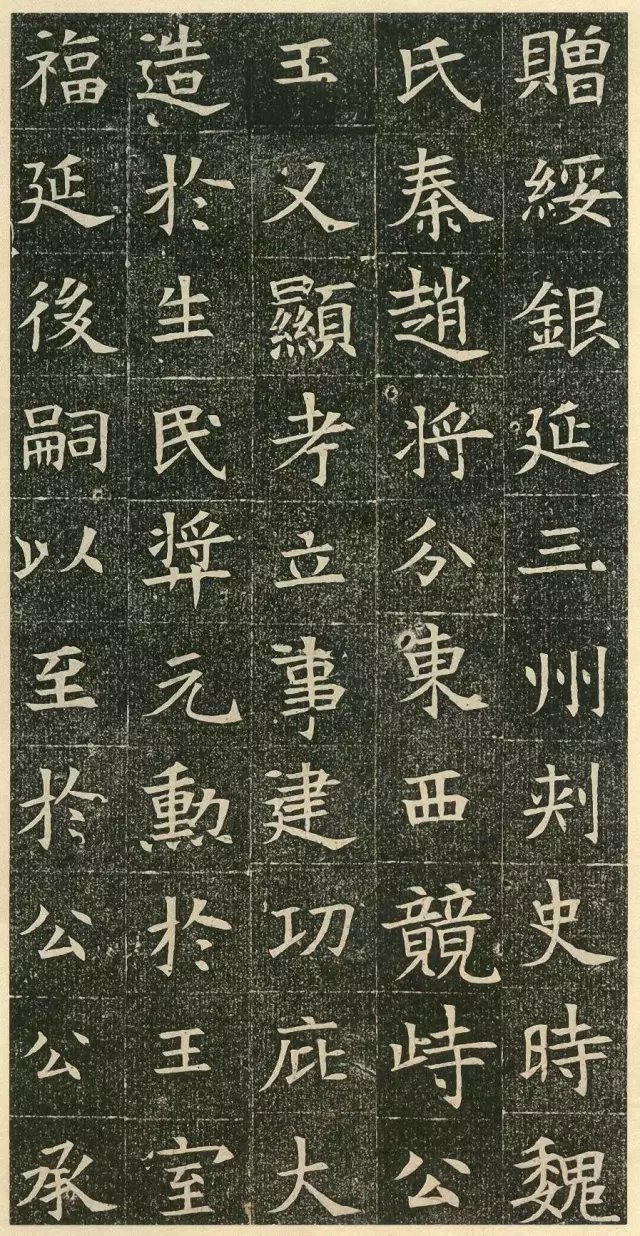 贈綏銀延三州刾史時魏
氏秦趙将分東西競峙公
王父顯考立事建功庇大
造於生民奨元勳於王室
福延後嗣以至於公公承